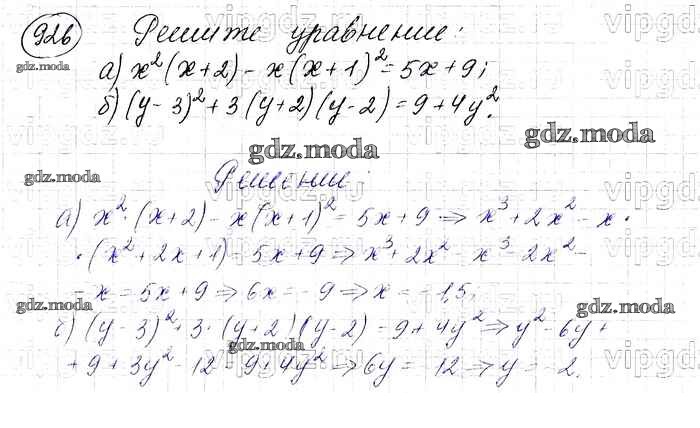 926 Решите уравнение:
gdz.moda
а) x²(x+2) - x(x+1)² = 5x+9;
б) (y-3)² + 3(y+2)(y-2) = 9+4y².
gdz.moda
gdz.moda
gdz.moda
Решение:
а) x²·(x+2) - x(x+1)² = 5x+9 => x³+2x²-x·
·(x²+2x+1) = 5x+9 => x³+2x²-x³-2x²-
-x = 5x+9 => 6x = -9 => x = -1,5;
gdz.moda
gdz.moda
б) (y-3)²+3·(y+2)(y-2) = 9+4y² => y²-6y+
gdz.moda
+9+3y²-12=9+4y² => 6y = -12 => y = -2.